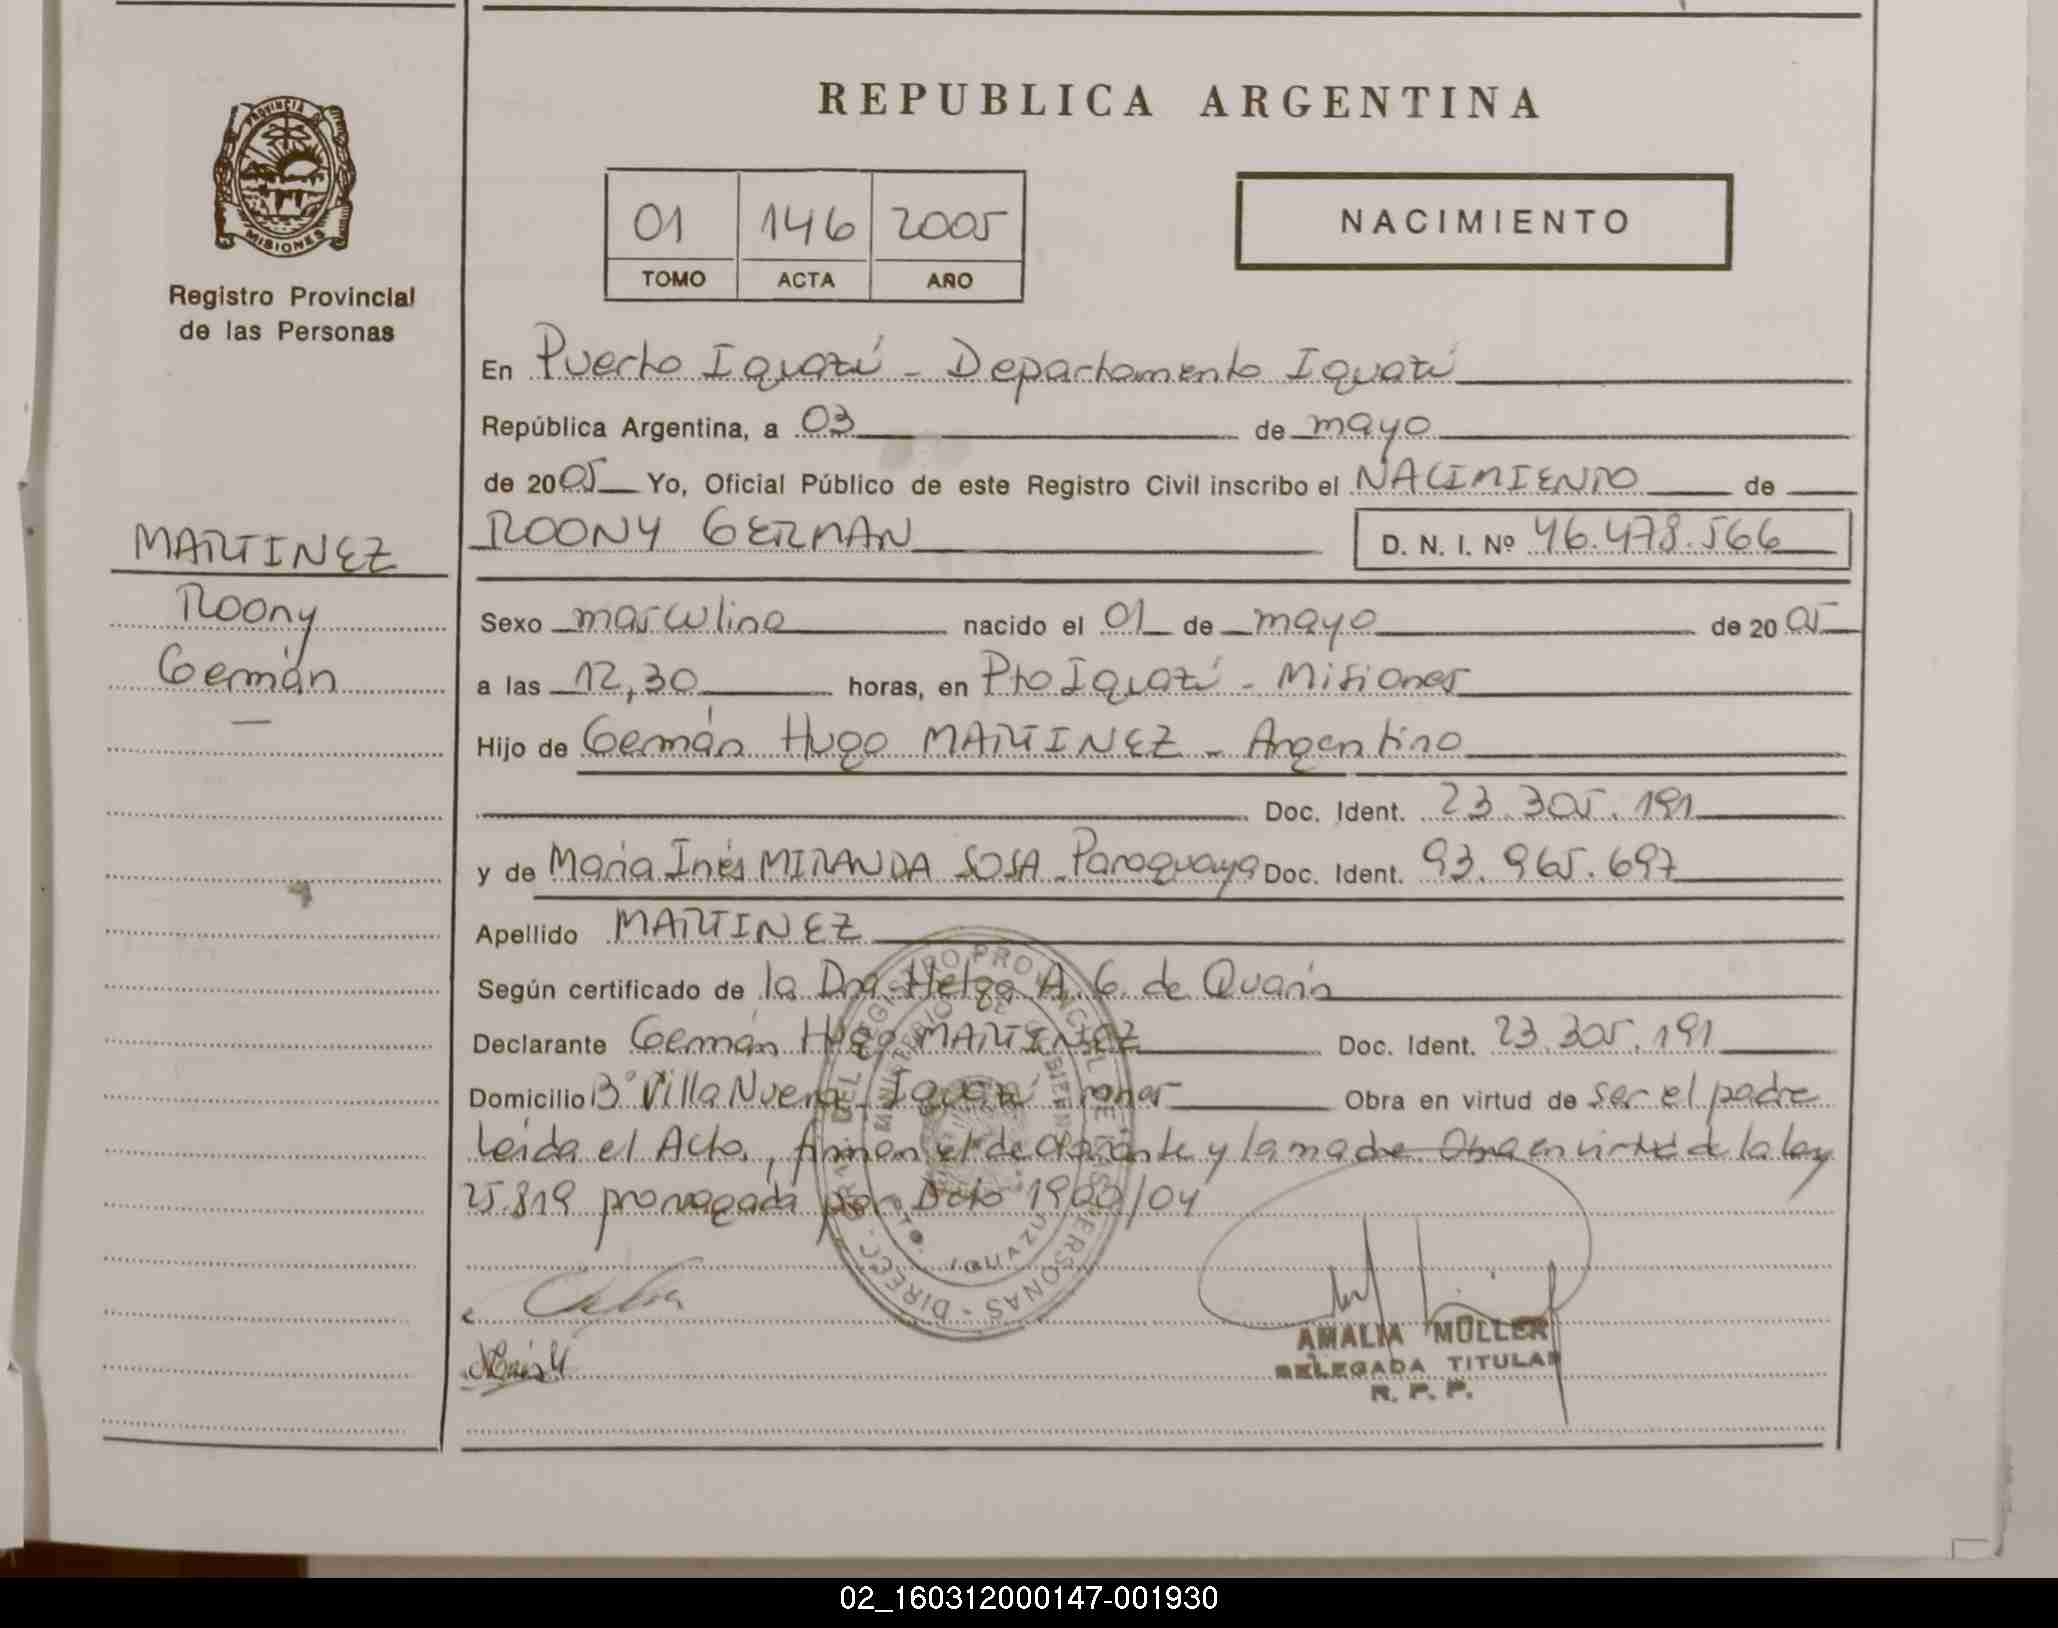 REPUBLICA ARGENTINA
PROVINCIA DE MISIONES
Registro Provincial
de las Personas
01 146 2005
TOMO ACTA AÑO
NACIMIENTO
En Puerto Iguazú - Departamento Iguazú
República Argentina, a 03 de mayo
de 2005 Yo, Oficial Público de este Registro Civil inscribo el NACIMIENTO de
MARTINEZ
Roony
Germán
ROONY GERMAN D. N. I. Nº 46.478.566
Sexo masculino nacido el 01 de mayo de 2005
a las 12,30 horas, en Pto Iguazú - Misiones
Hijo de Germán Hugo MARTINEZ - Argentino
Doc. Ident. 23.305.191
y de Maria Inés MIRANDA SOSA - Paraguaya Doc. Ident. 93.965.697
Apellido MARTINEZ
Según certificado de la Dra. Helga A. G. de Quarin
Declarante Germán Hugo MARTINEZ Doc. Ident. 23.305.191
Domicilio Bº Villa Nueva - Iguazú Obra en virtud de ser el padre
Leida el Acta, firman el declarante y la madre. Obra en virtud de la ley
25.819 por Dcto 1900/04
DIRECC. GRAL. DEL REGISTRO PROVINCIAL DE LAS PERSONAS
MINISTERIO DE GOBIERNO
PTO. IGUAZU
AMALIA MULLER
DELEGADA TITULAR
R. P. P.
02_160312000147-001930